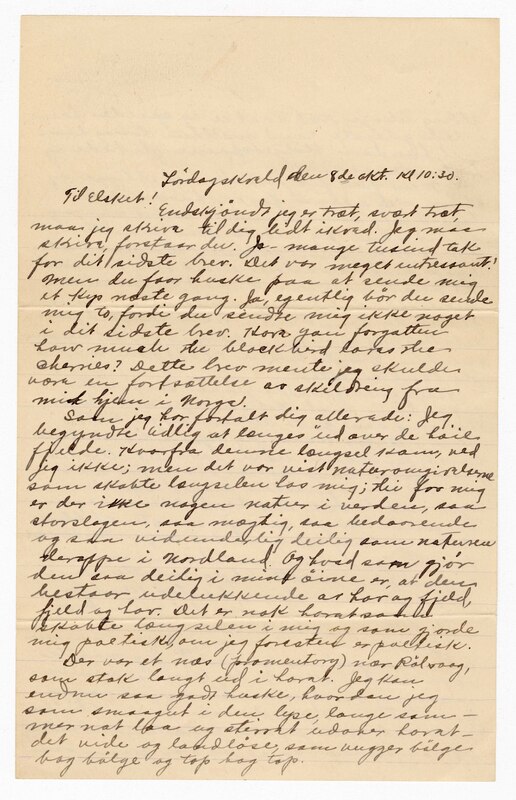 Lørdagskveld den 8de okt. Kl 10:30.
Til Elsket!
Endskjøndt jeg er træt, svært træt,
maa jeg skrive til dig lidt ikveld. Jeg maa
skrive, forstaar du. Ja - mange tusind tak
for dit sidste brev. Det var meget intressant!
men du faar huske paa at sende mig
et kys næste gang. Ja, egentlig bør du sende
mig to, fordi du sendte mig ikke noget
i dit sidste brev. Have you forgotten
how much the blackbird loves the
cherries? Dette brev mente jeg skulde
være en fortsættelse av skildring fra
mit hjem i Norge.
Som jeg har fortalt dig allerede: Jeg
begyndte tidlig at længes "ud over de høie
fjelde. Hvorfra denne længsel kom, ved
jeg ikke; men det var vist naturomgivelserne
som skabte længselen hos mig; thi for mig
er der ikke nogen natur i verden, saa
storslagen, saa mægtig, saa bedaarende
og saa vidunderlig deilig som naturen
deroppe i Nordland. Og hvad som gjør
den saa deilig i mine øine er, at den
bestaar udelukkende av hav og fjeld,
fjeld og hav. Det er nok havet som
skabte længselen i mig og som gjorde
mig poetisk, om jeg foresten er poetisk.
Der var et næs (promentory) nær Rølvaag,
som stak langt ud i havet. Jeg kan
endnu saa godt huske, hvordan jeg
som smaagut i den lyse, lange som-
mernat laa og stirret udover havet-
det vide og landløse, som vugger bølge
bag bølge og top bag top.